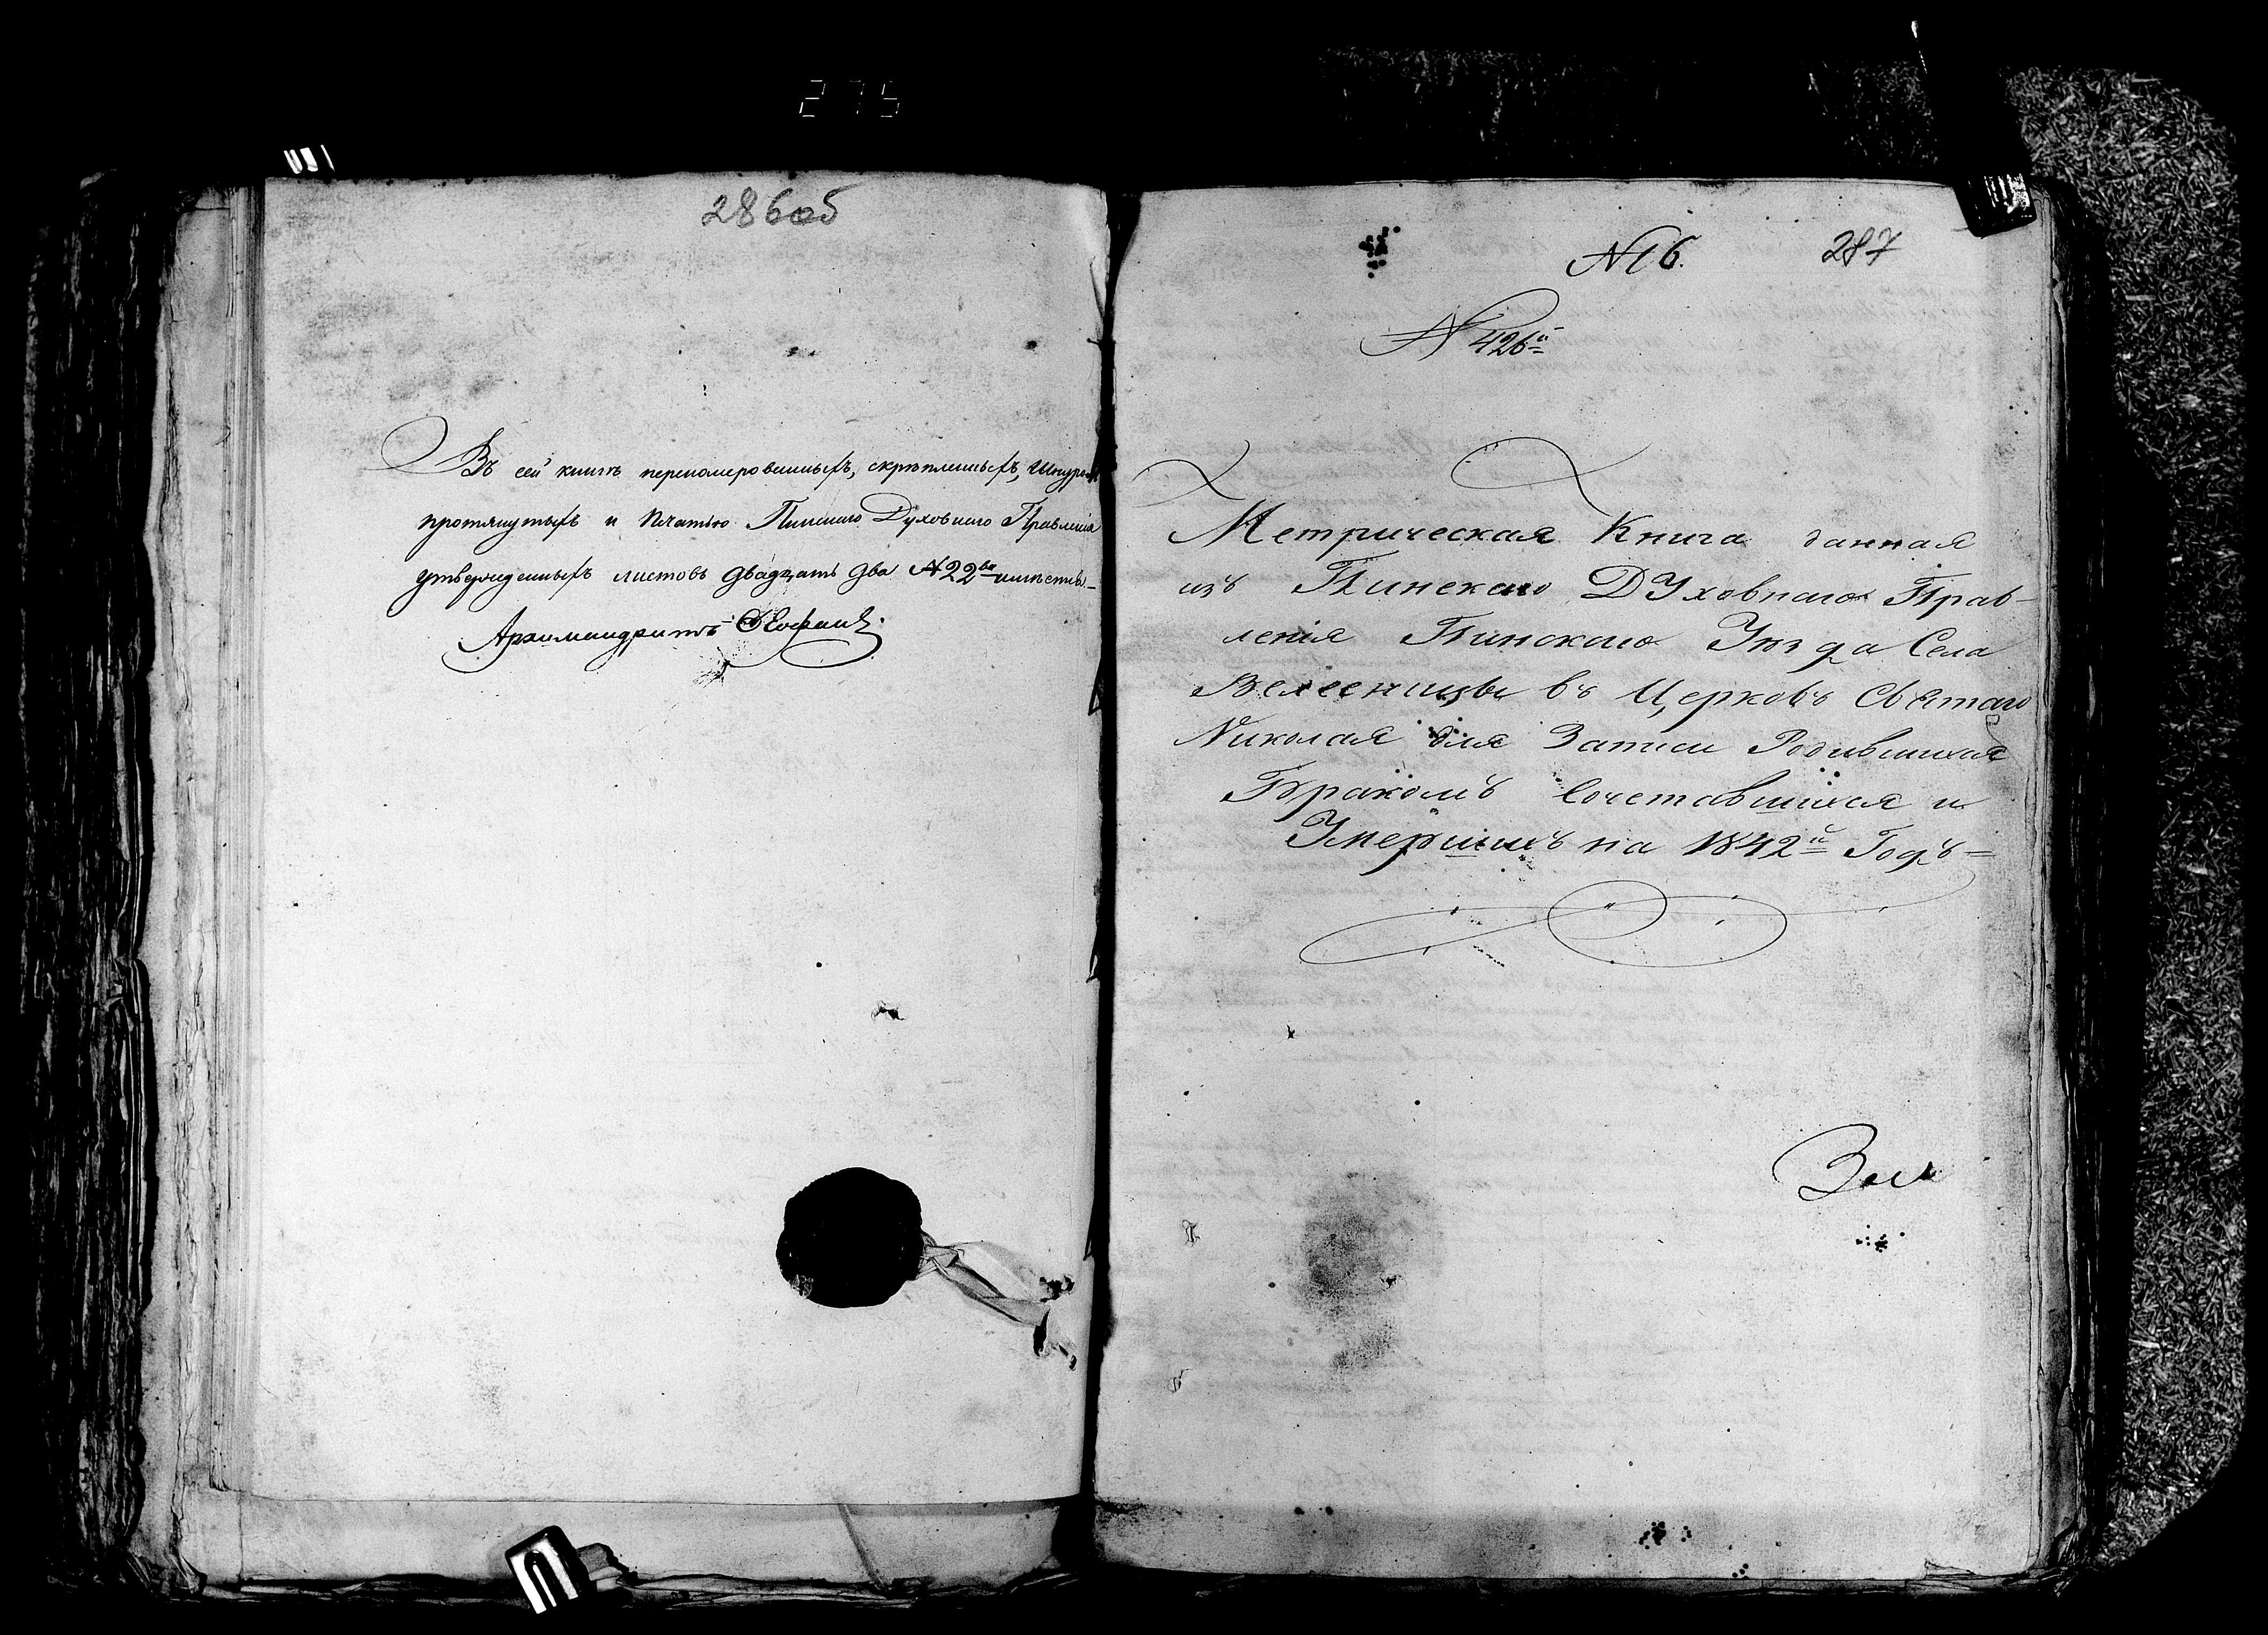 275
286об
Въ сей книгѣ перенomерованныхъ, скрѣпленныхъ, шнуромъ
протянутыхъ и печатью Пинскаго Духовнаго Правленія
утвержденныхъ листовъ двадцать два №22ва имѣется
Архимандритъ
№16.
287
№ 426й
Метрическая Книга данная
изъ Пинскаго Духовнаго Прав-
ленія Пинскаго Уѣзда Села
Велесницы въ Церковь Святаго
Николая для Записи Родившихся
Бракомъ Сочетавшихся и
Умершихъ на 1842й Годъ=